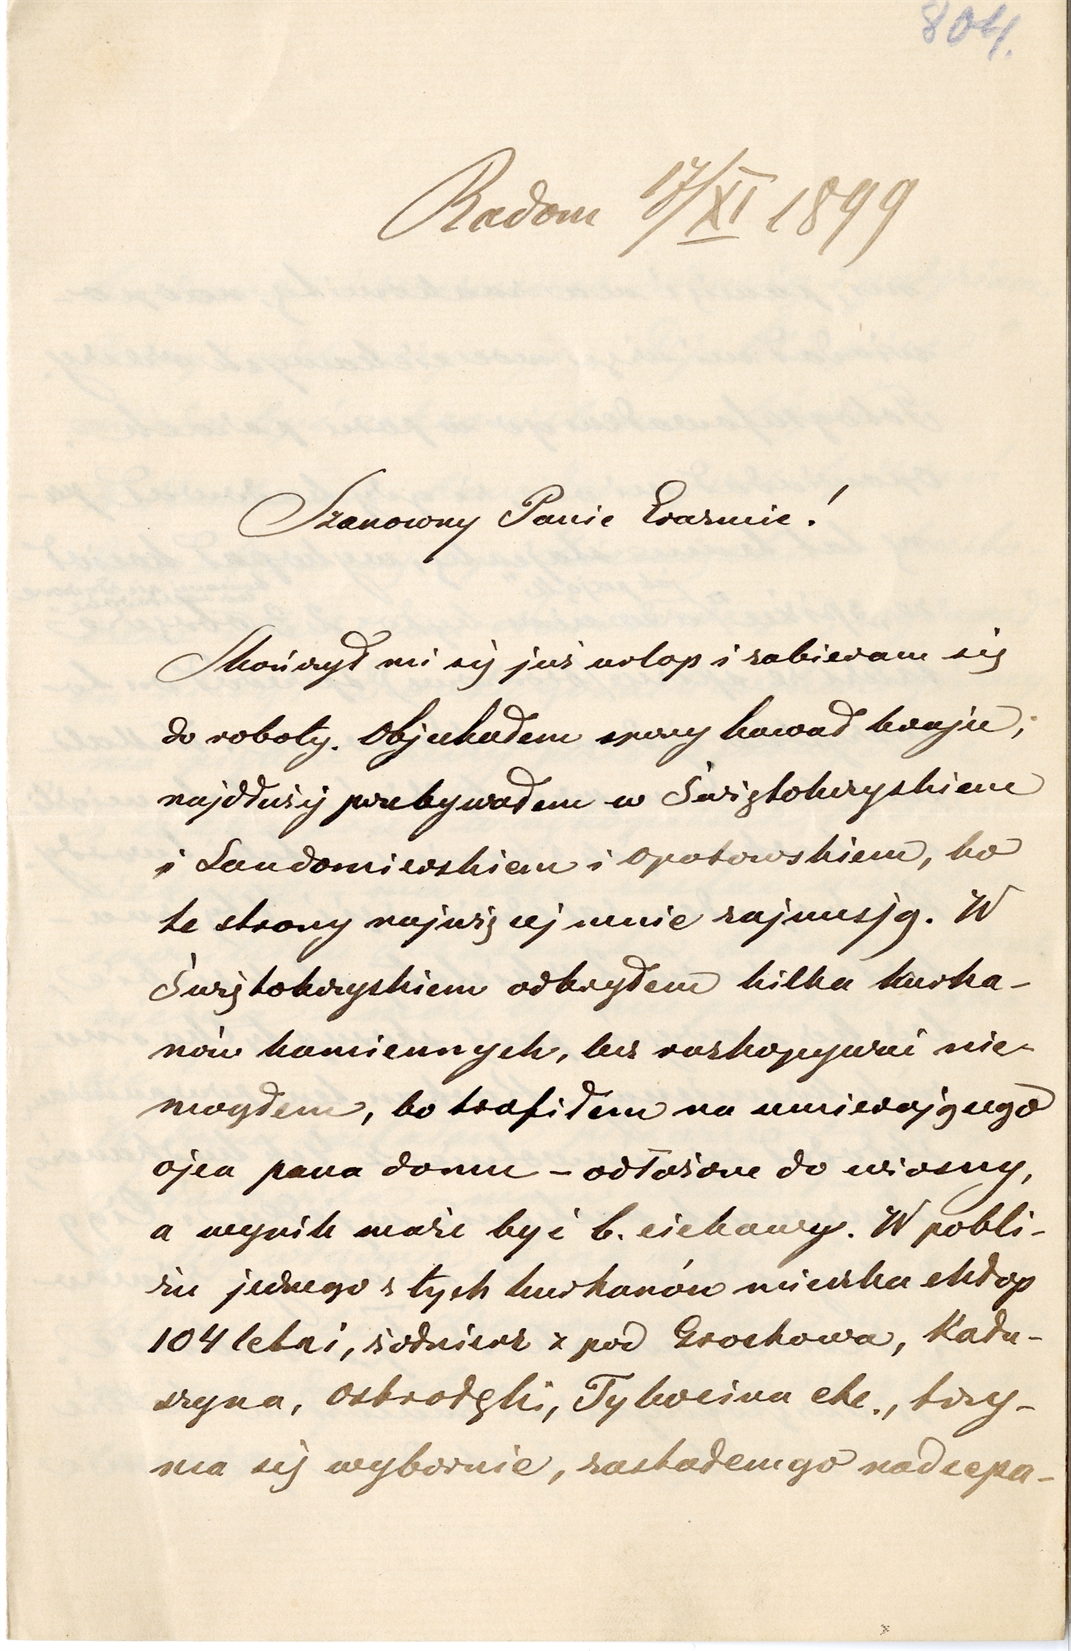 804.
Radom 17/XI 1899
Szanowny Panie Erazmie!
Skończył mi się już urlop i zabieram się
do roboty. Objechałem spory kawał kraju;
najdłużej przebywałem w Świętokrzyskiem
i Sandomierskiem i Opatowskiem, bo
te strony najwięcej mnie zajmują. W
Świętokrzyskiem odkryłem kilka kurha-
nów kamiennych, lecz rozkopywać nie-
mogłem, bo trafiłem na umierającego
ojca pana domu – odłożone do wiosny,
a wynik może być b. ciekawy. W pobli-
żu jednego z tych kurhanów mieszka chłop
104 letni, żołnierz z pod Grochowa, Kału-
szyna, Ostrołęki, Tykocina etc., trzy-
ma się wybornie, zastałem go nad cepa-